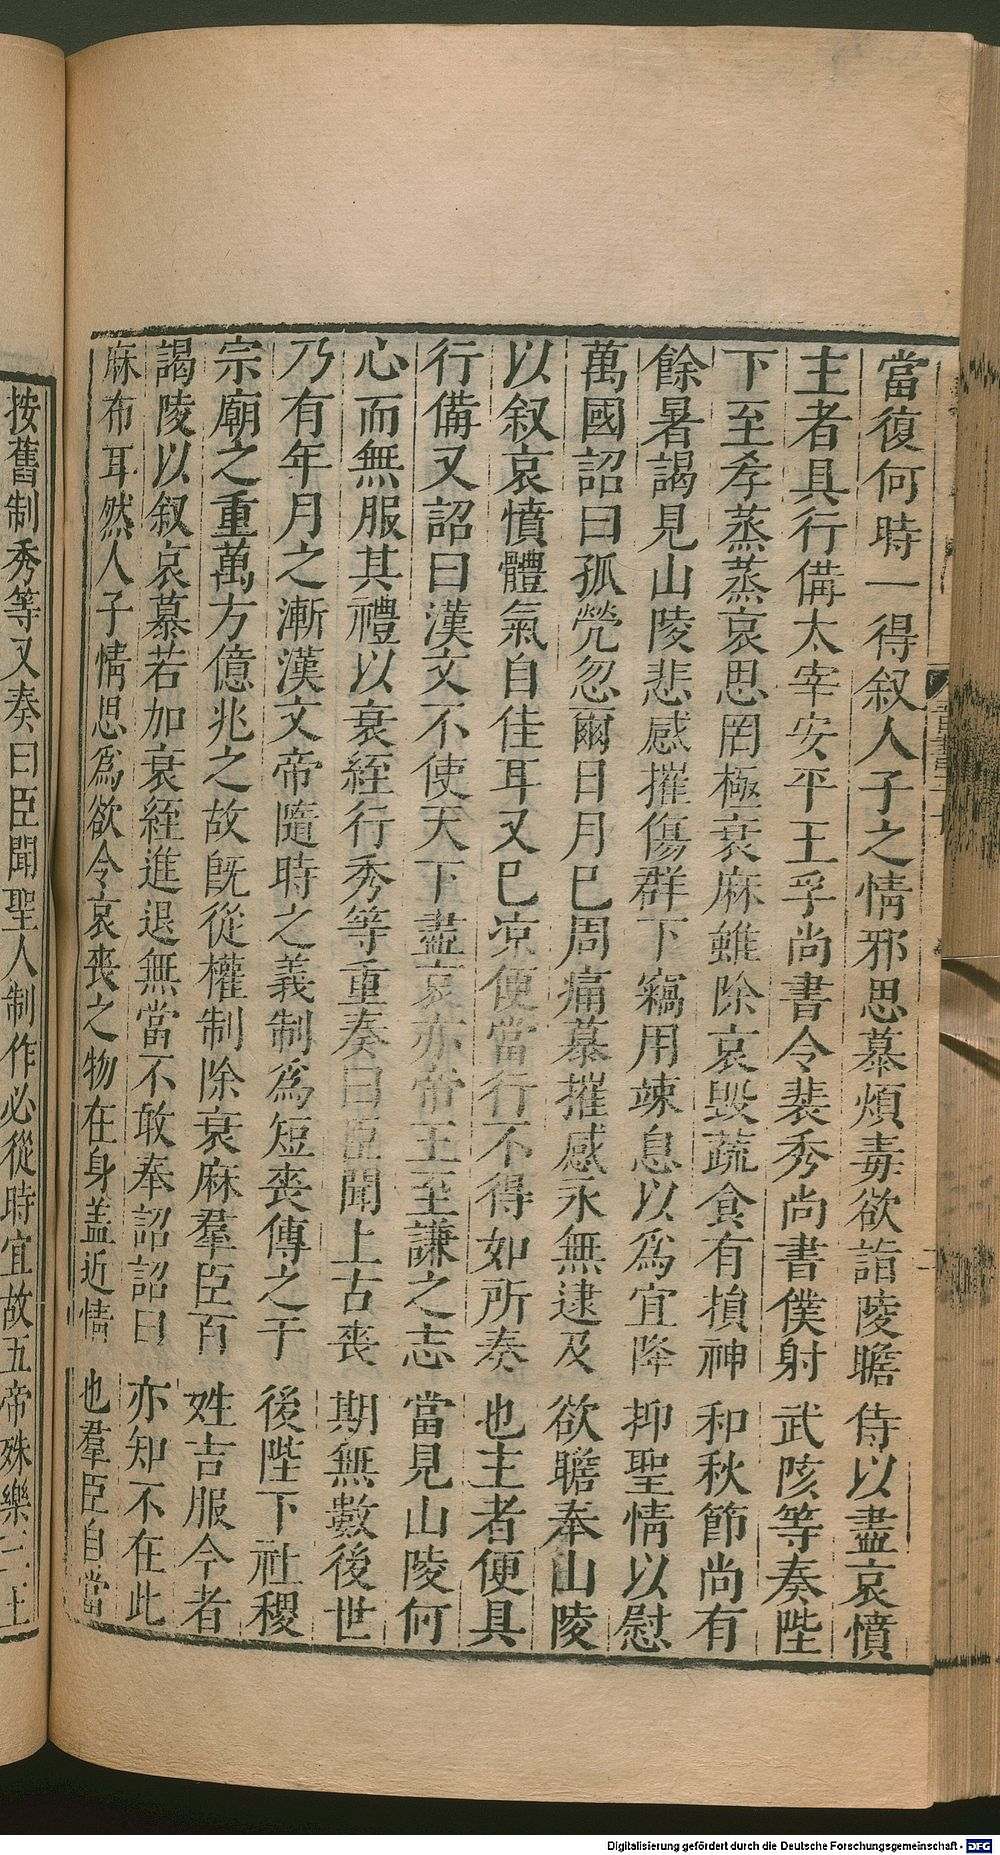 當復何時一得叙人子之情邪思慕煩毒欲詣陵瞻侍以盡哀憤
主者具行備太宰安平王孚尚書令裴秀尚書僕射武陔等奏陛
下至孝蒸蒸哀思罔極衰麻雖除哀毀蔬食有損神和秋節尚有
餘暑謁見山陵悲感摧傷群下竊用竦息以爲宜降抑聖情以慰
萬國詔曰孤煢忽爾日月已周痛慕摧感永無逮及欲瞻奉山陵
以叙哀憤體氣自佳耳又已凉便當行不得如所奏也主者便具
行備又詔曰漢文不使天下盡哀亦帝王至謙之志當見山陵何
心而無服其禮以衰絰行秀等重奏曰臣聞上古喪期無數後世
乃有年月之漸漢文帝隨時之義制爲短喪傳之于後陛下社稷
宗廟之重萬方億兆之故旣從權制除衰麻羣臣百姓吉服今者
謁陵以叙哀慕若加衰絰進退無當不敢奉詔詔曰亦知不在此
麻布耳然人子情思爲欲令哀喪之物在身盖近情也羣臣自當
按舊制秀等又奏曰臣聞聖人制作必從時宜故五帝殊樂三王
Digitalisierung gefördert durch die Deutsche Forschungsgemeinschaft - DFG